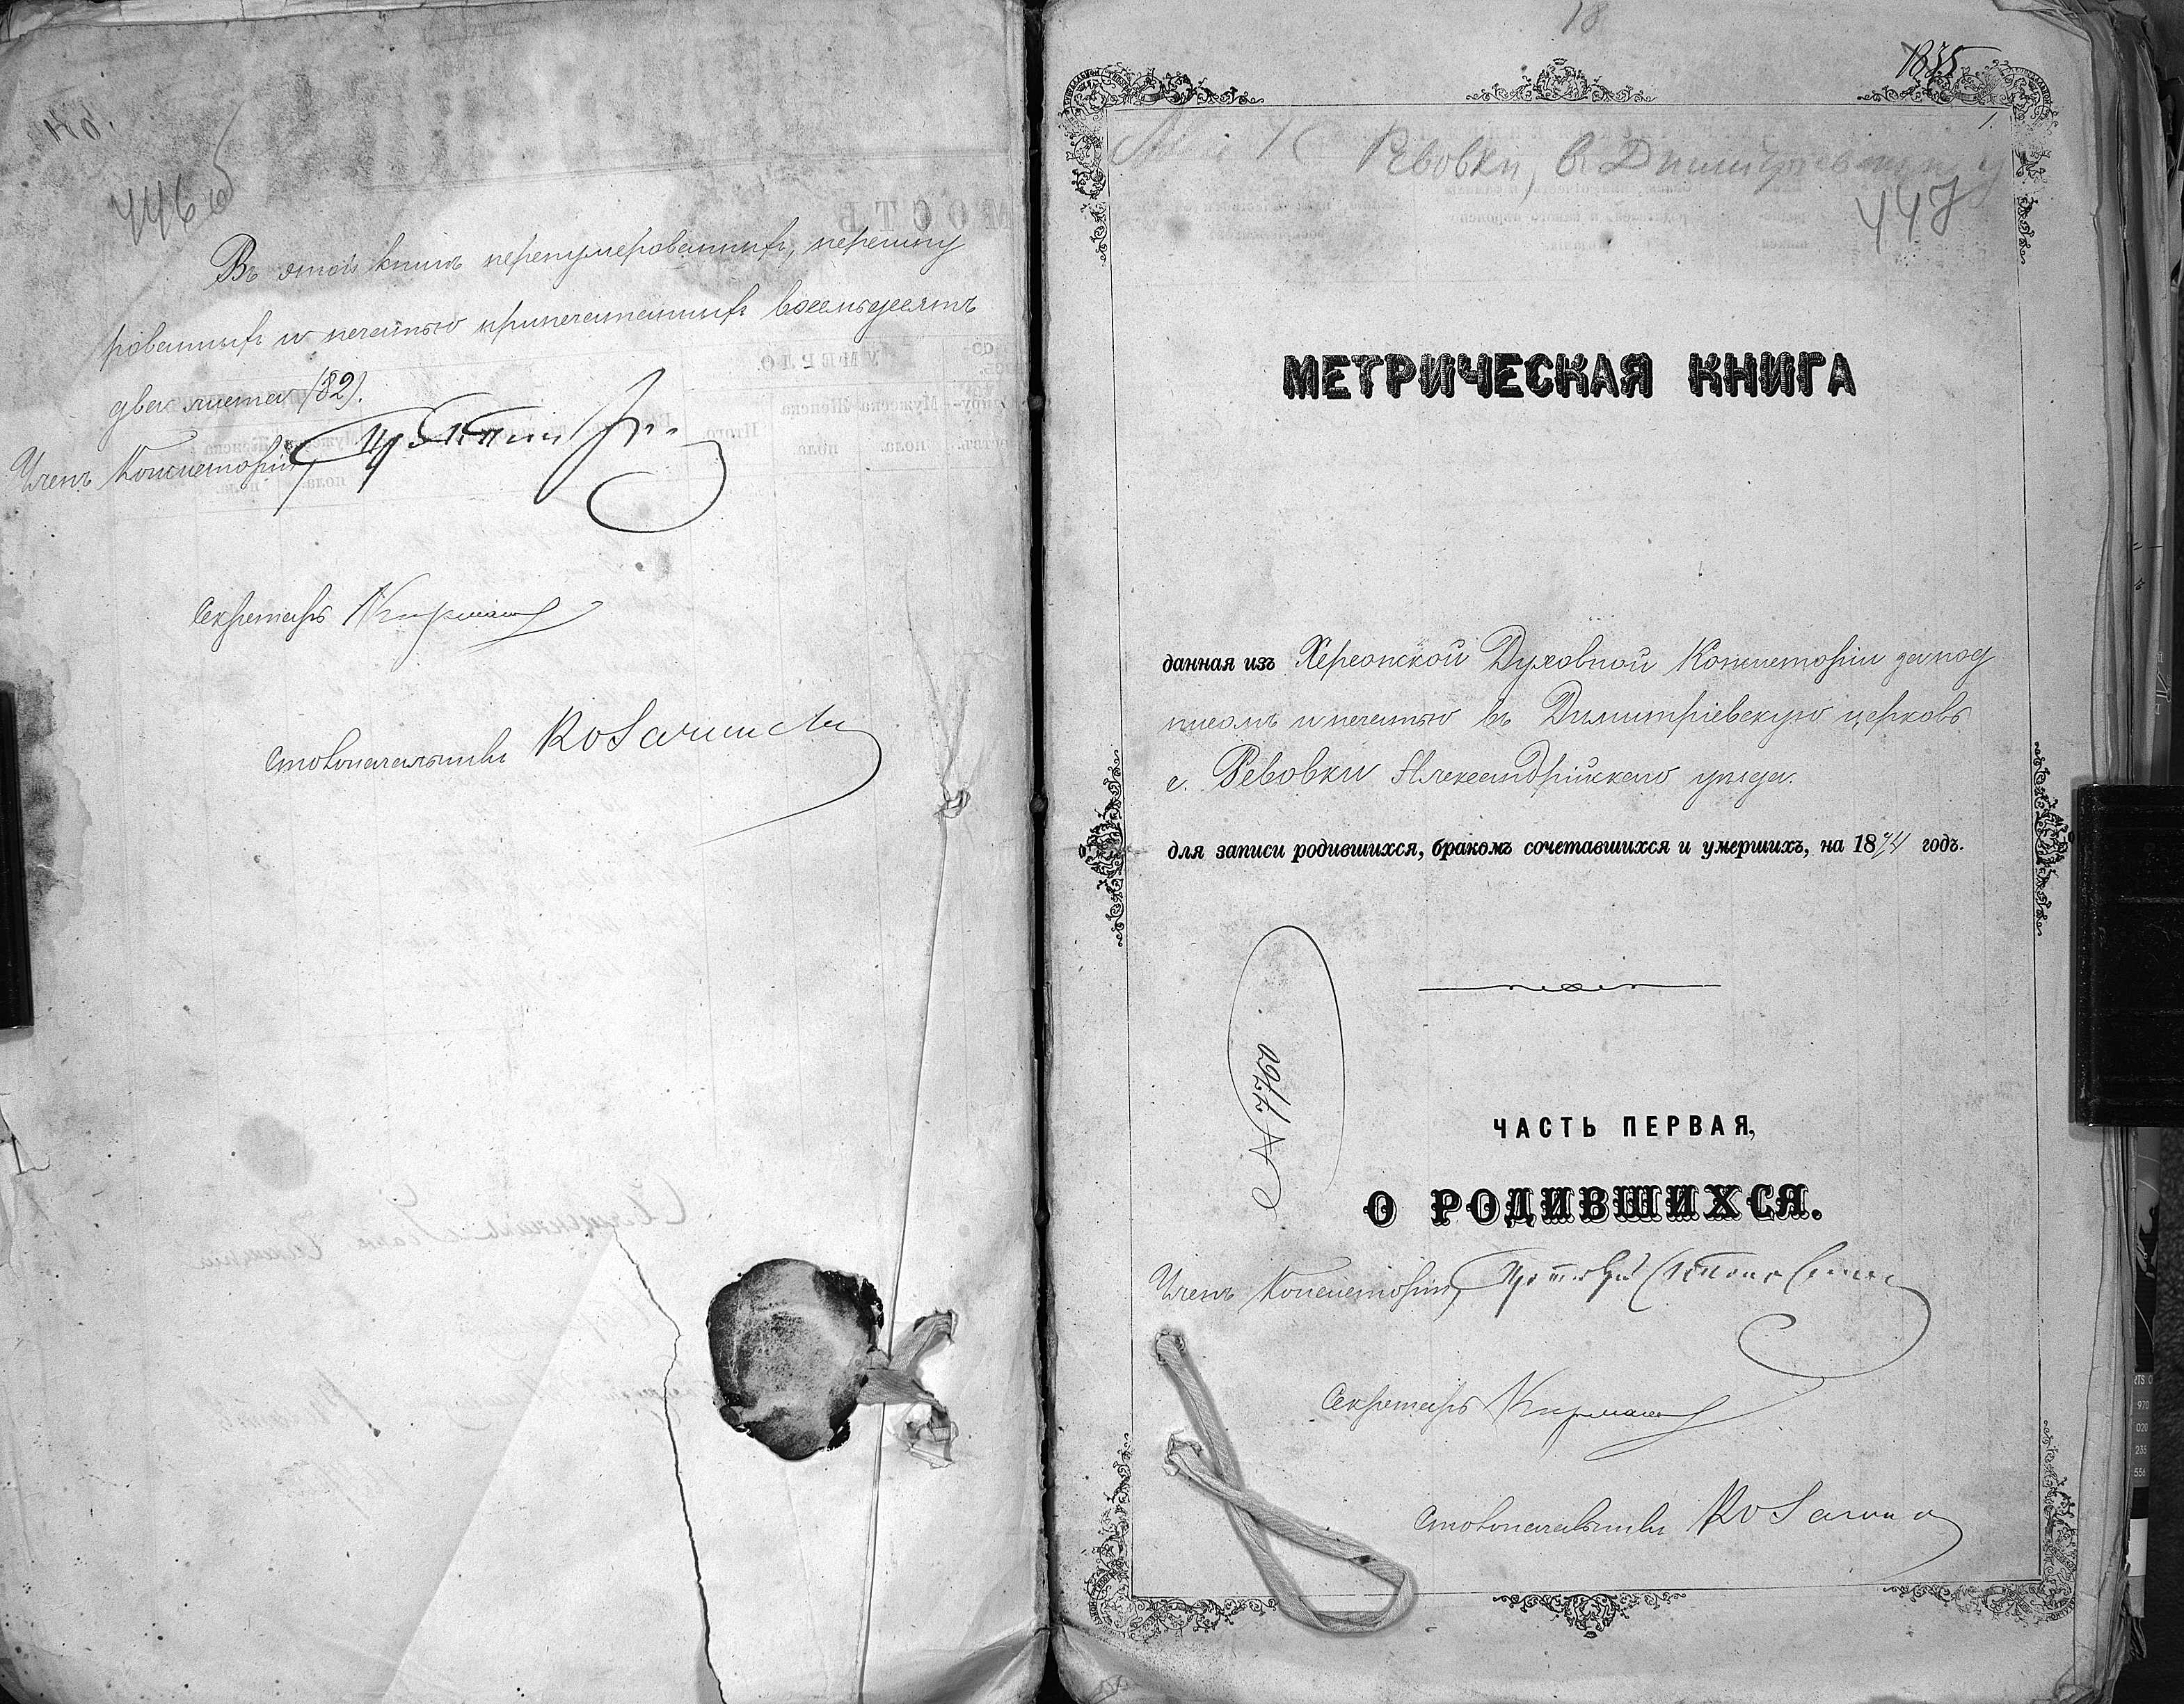 446 об
Въ этой книгѣ перенумерованныхъ, перешну
рованныхъ и печатью припечатанныхъ восемьдесятъ
два листа (82).
Членъ Консисторіи,
Секретарь
Столоначальникъ
18
1835
1.
Ревовки, в Димитриевскую
447
МЕТРИЧЕСКАЯ КНИГА
данная изъ Херсонской Духовной Консисторіи за под
писомъ и печатью въ Димитріевскую церковь
с. Ревовки Александрійскаго уѣзда.
для записи родившихся, бракомъ сочетавшихся и умершихъ, на 1874 годъ.
№ 7760
ЧАСТЬ ПЕРВАЯ,
О РОДИВШИХСЯ.
Членъ Консисторіи, Протоіерей
Секретарь
Столоначальникъ